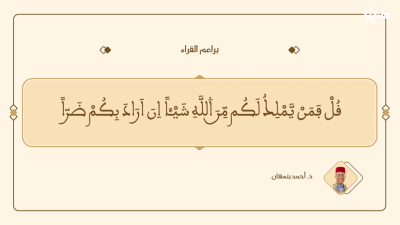 براعم القراء
قُلْ فَمَنْ يَّمْلِكُ لَكُم مِّنَ اَ۬للَّهِ شَيْـٔاً اِنَ اَرَادَ بِكُمْ ضَرّاً
ذ. أحمد بنمهان